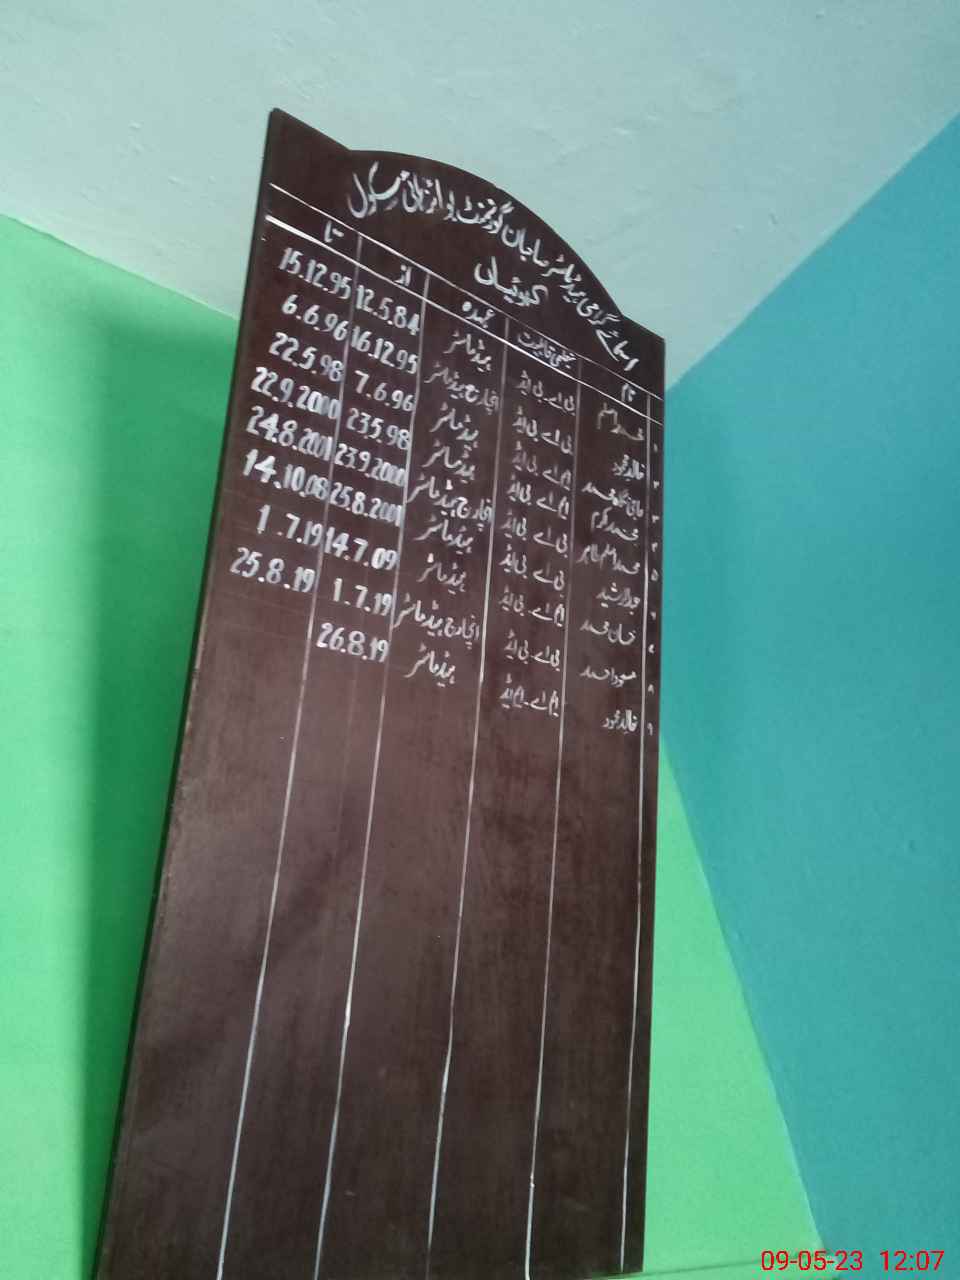 اسمائے گرامی ہیڈ ماسٹر صاحبان گورنمنٹ بوائز ہائی سکول
نام تعلیمی قابلیت عہدہ از تا
۱ محمد اسلم بی اے۔بی ایڈ ہیڈ ماسٹر 12.5.84 15.12.95
۲ خالد محمود بی اے بی ایڈ انچارج ہیڈ ماسٹر 16.12.95 6.6.96
۳ محمد ایم اے بی ایڈ ہیڈ ماسٹر 7.6.96 22.5.98
۴ محمد اکرم ایم اے بی ایڈ ہیڈ ماسٹر 23.5.98 22.9.2000
۵ محمد اسلم طاہر بی اے بی ایڈ انچارج ہیڈ ماسٹر 23.9.2000 24.8.2001
۶ عبدالرشید بی اے بی ایڈ ہیڈ ماسٹر 25.8.2001 14.10.08
۷ خان محمد ایم اے۔بی ایڈ ہیڈ ماسٹر 14.7.09 1.7.19
۸ مسعود احمد بی اے۔بی ایڈ انچارج ہیڈ ماسٹر 1.7.19 25.8.19
۹ خالد محمود ایم اے۔ایم ایڈ ہیڈ ماسٹر 26.8.19
09-05-23 12:07